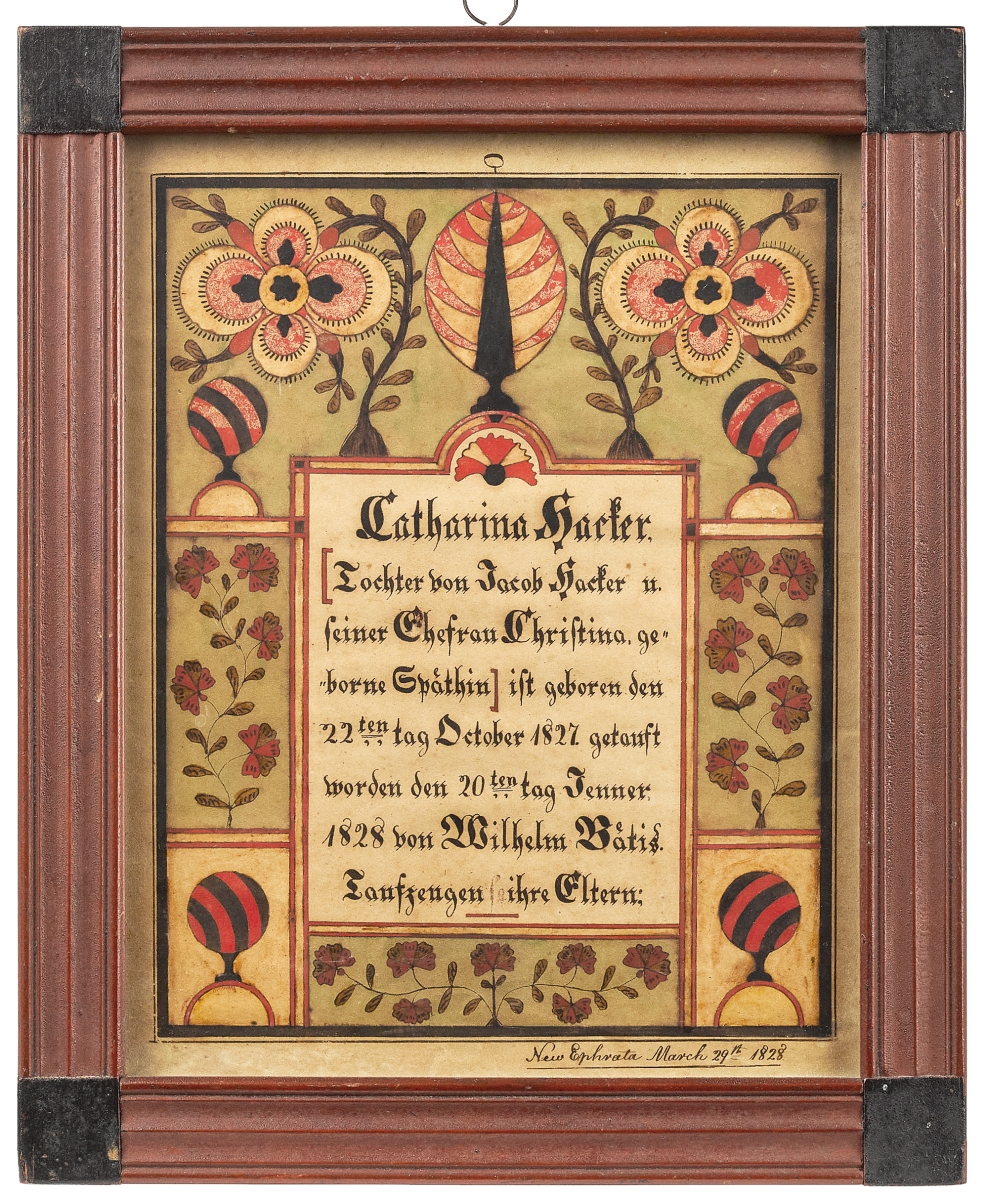 Catharina Hacker,
[Tochter von Jacob Hacker u.
seiner Ehefrau Christina, ge„
„borne Späthin] ist geboren den
22ten tag October 1827 getauft
worden den 20ten tag Jenner,
1828 von Wilhelm Bätis.
Taufzeugen ihre Eltern;
New Ephrata March 29th 1828